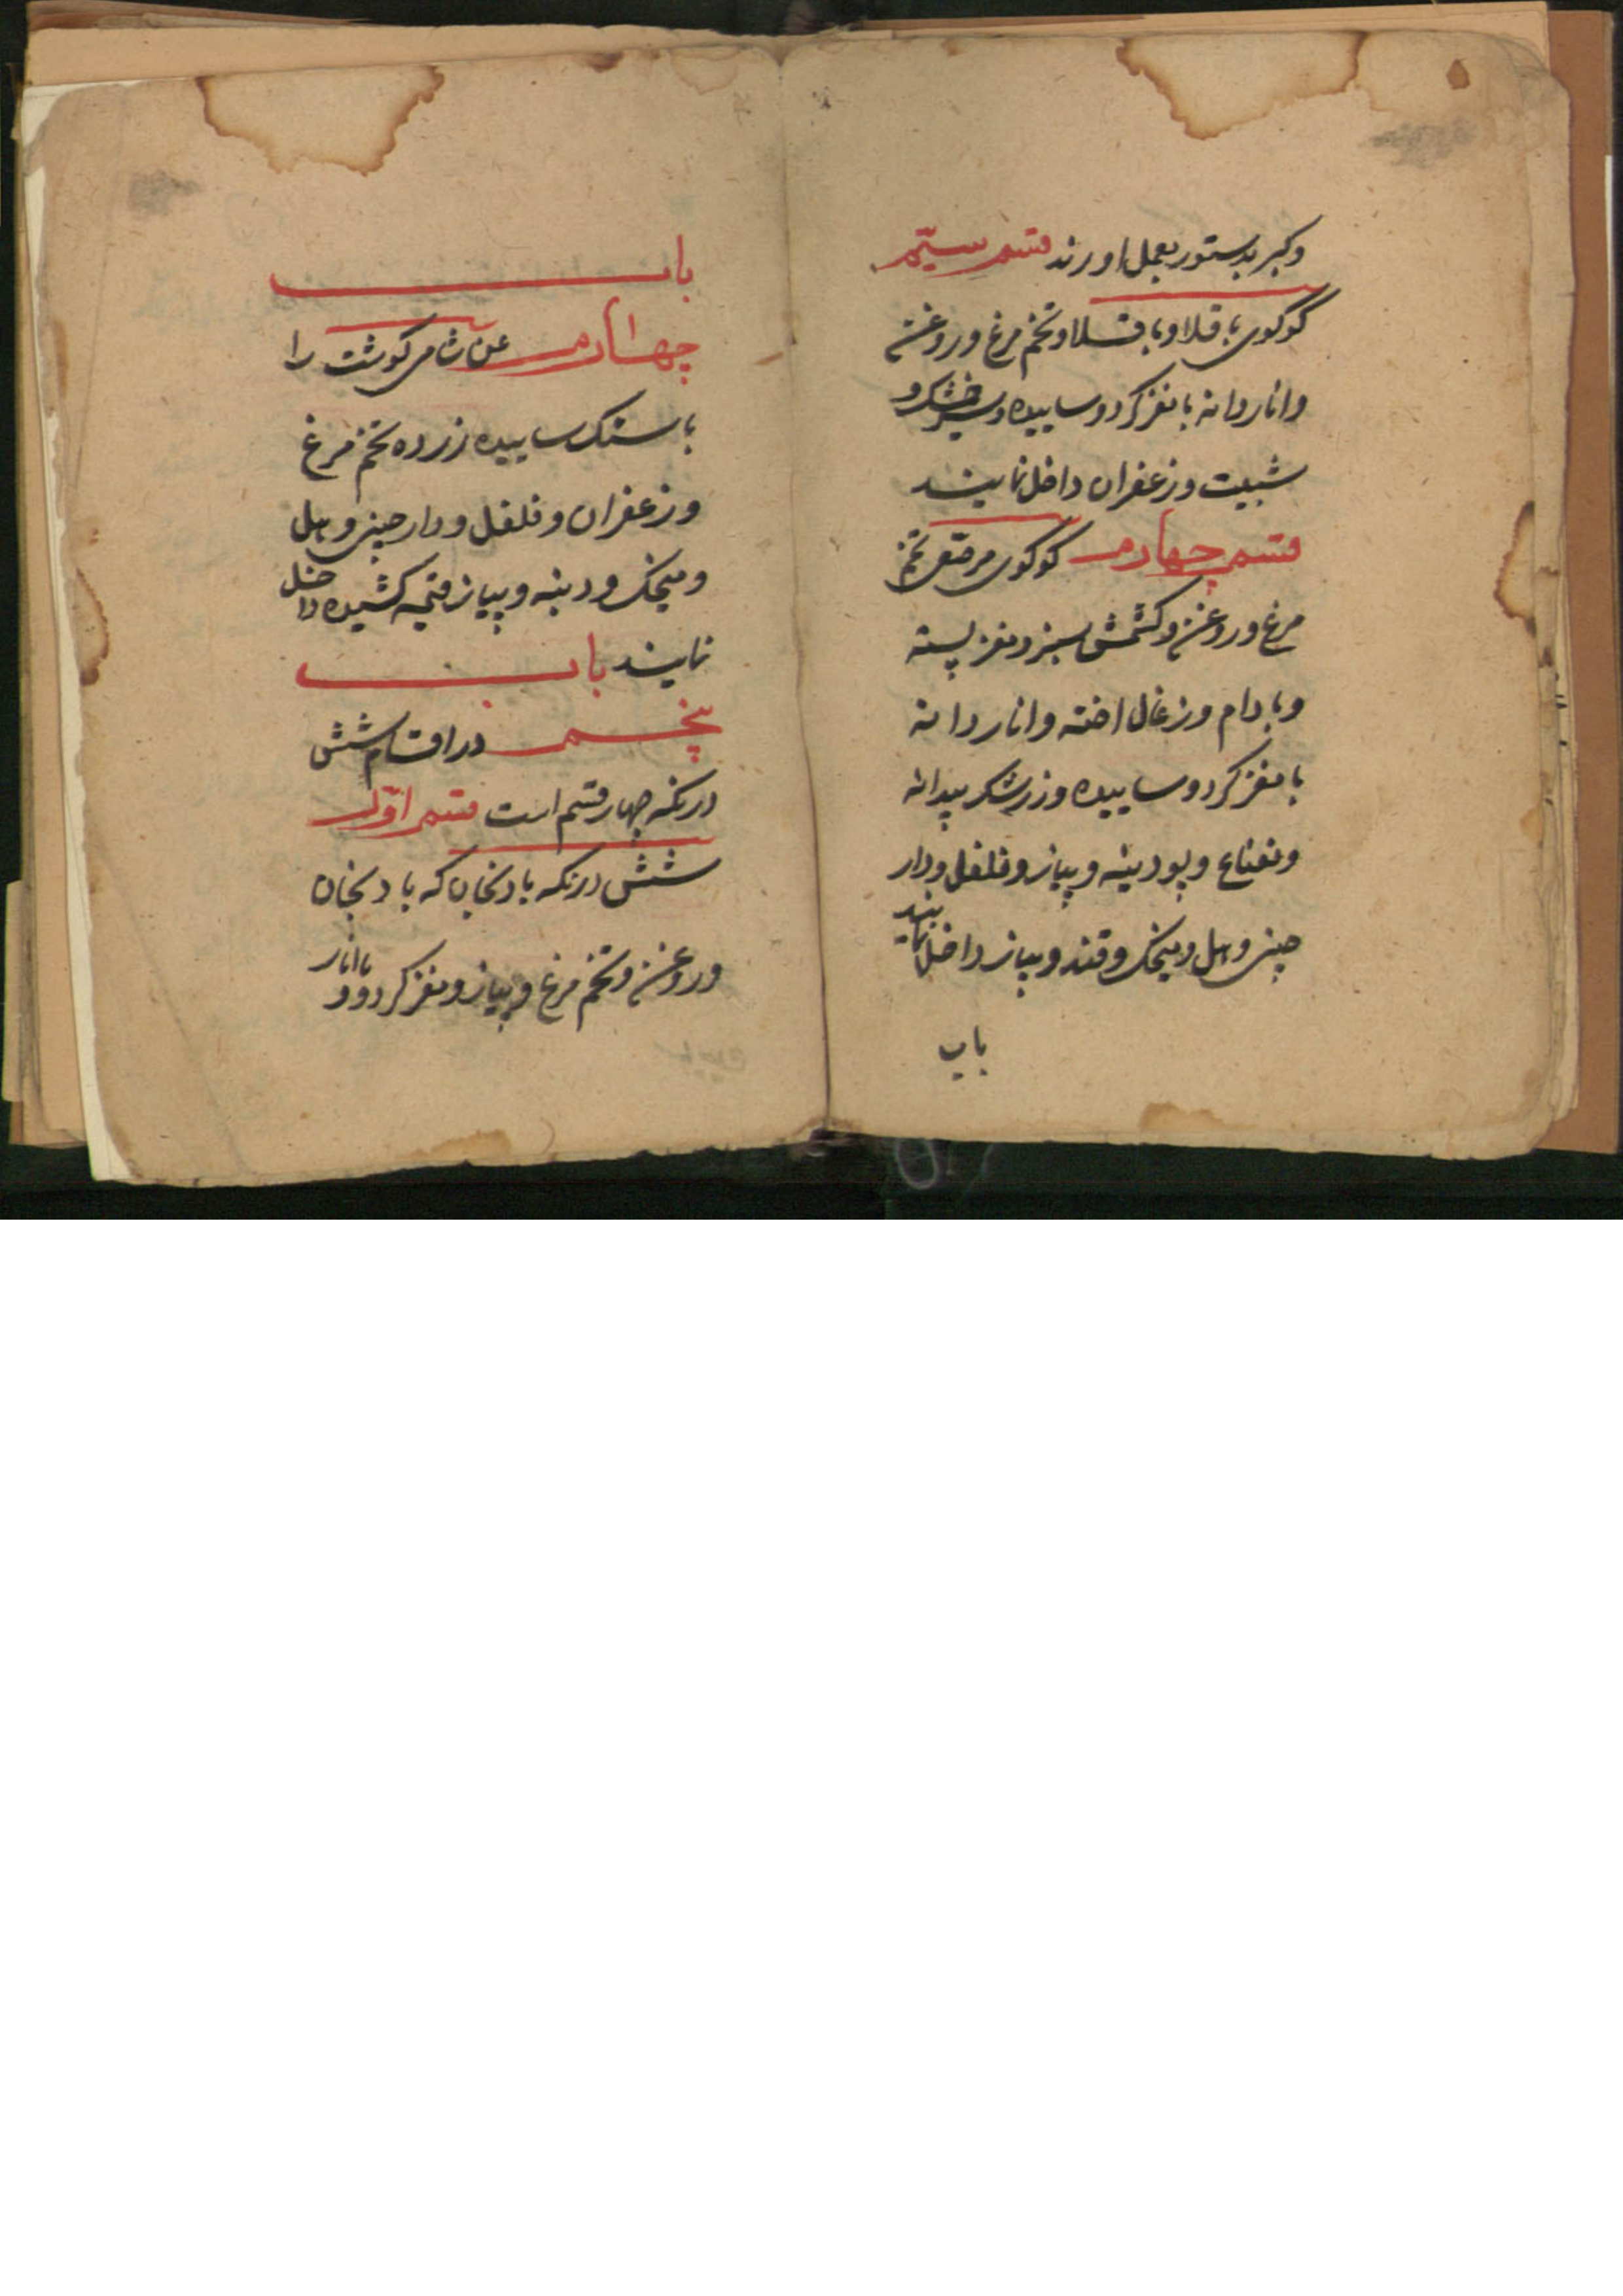 وکیر بدستور بعمل اورند قسم سیّم
کوکوی باقلا و باقلا و تخم مرغ و روغن
و اناردانه با مغز کردو ساییده و سیر خشک و
شبت و زعفران داخل نمایند
قسم چهارم کوکوی مرصّع تخم
مرغ و روغن و کشمش سبز و مغز پسته
و بادام و زغال اخته و اناردانه
با مغز کردو ساییده و زرشک بیدانه
و نعناع و پودینه و پیاز و فلفل و دار
چینی و هل و میخک و قند و پیاز داخل نمایند
باب
باب
چهارم شامی کوشت را
با سنک ساییده زرده تخم مرغ
و زعفران و فلفل و دارچینی و هل
و میخک و دنبه و پیاز قیمه کشیده داخل
نمایند باب
پنجم در اقسام شش
درنکه چهار قسم است قسم اوّل
شش درنکه بادنجان که بادنجان
و روغن و تخم مرغ و پیاز و مغز کردو و با انار